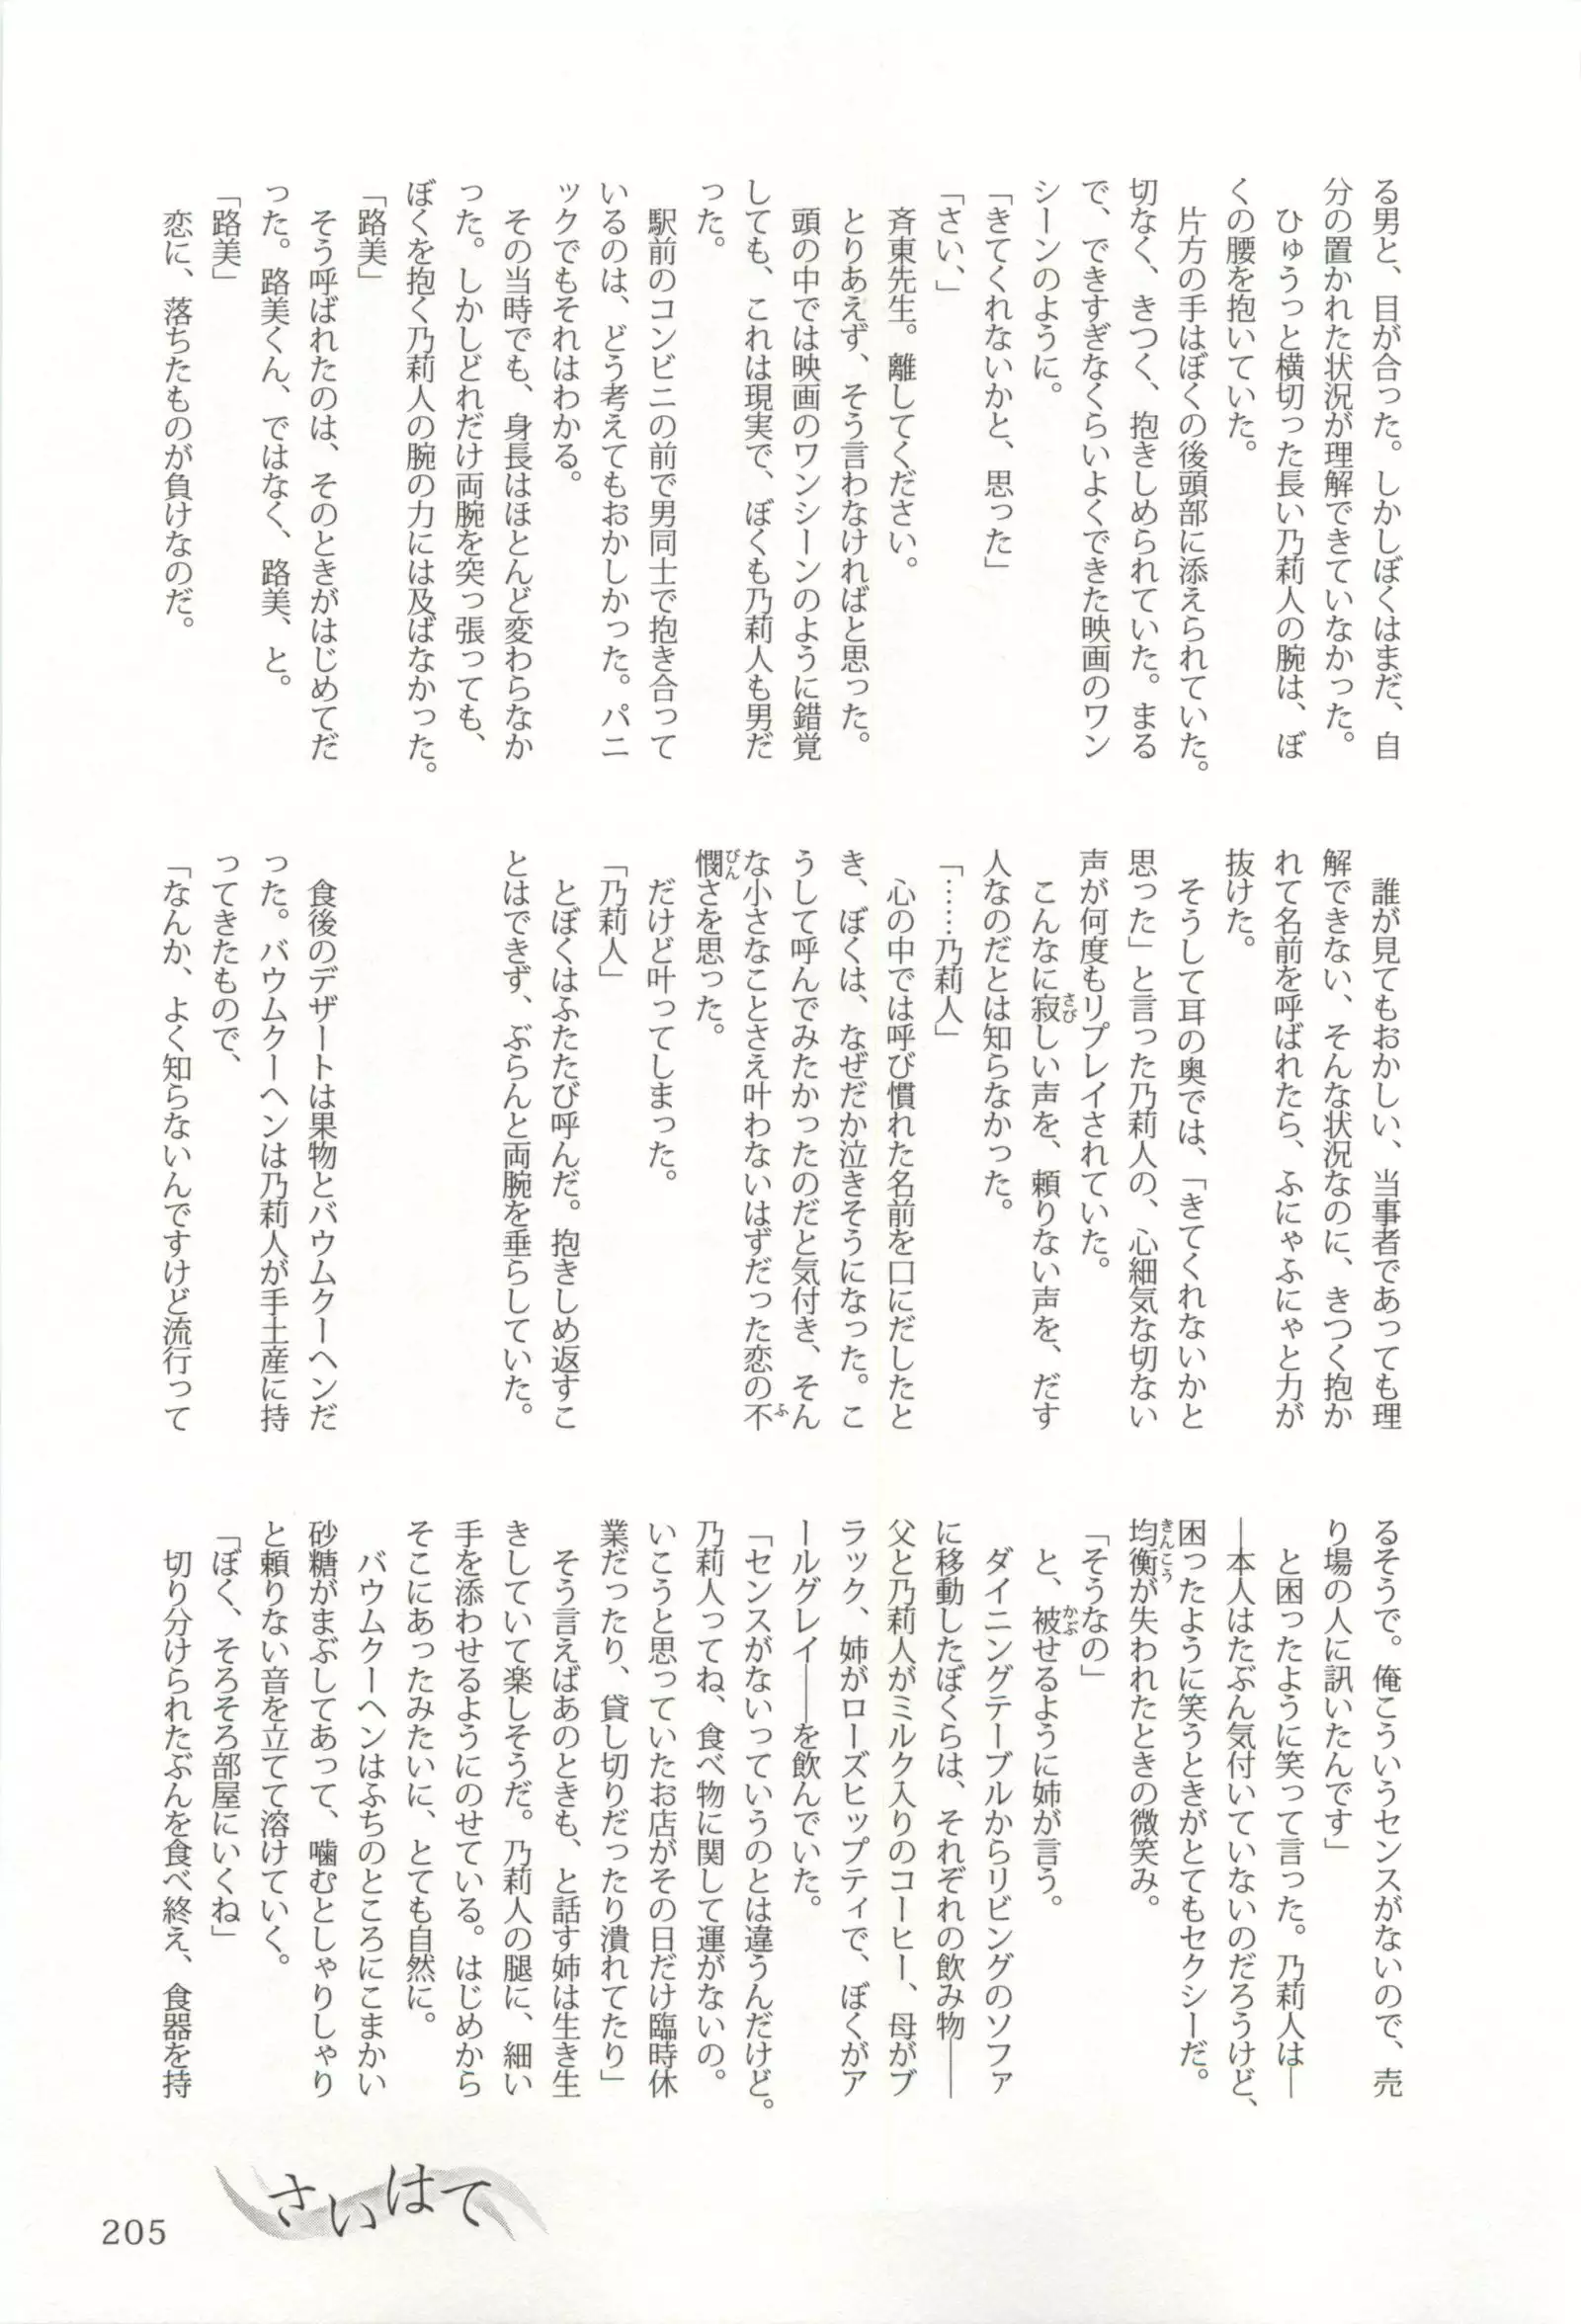 る男と、目が合った。しかしぼくはまだ、自
分の置かれた状況が理解できていなかった。
　ひゅうっと横切った長い乃莉人の腕は、ぼ
くの腰を抱いていた。
　片方の手はぼくの後頭部に添えられていた。
切なく、きつく、抱きしめられていた。まる
で、できすぎなくらいよくできた映画のワン
シーンのように。
「きてくれないかと、思った」
「さい、」
　斉東先生。離してください。
　とりあえず、そう言わなければと思った。
　頭の中では映画のワンシーンのように錯覚
しても、これは現実で、ぼくも乃莉人も男だ
った。
　駅前のコンビニの前で男同士で抱き合って
いるのは、どう考えてもおかしかった。パニ
ックでもそれはわかる。
　その当時でも、身長はほとんど変わらなか
った。しかしどれだけ両腕を突っ張っても、
ぼくを抱く乃莉人の腕の力には及ばなかった。
「路美」
　そう呼ばれたのは、そのときがはじめてだ
った。路美くん、ではなく、路美、と。
「路美」
　恋に、落ちたものが負けなのだ。
　誰が見てもおかしい、当事者であっても理
解できない、そんな状況なのに、きつく抱か
れて名前を呼ばれたら、ふにゃふにゃと力が
抜けた。
　そうして耳の奥では、「きてくれないかと
思った」と言った乃莉人の、心細気な切ない
声が何度もリプレイされていた。
　こんなに寂しい声を、頼りない声を、だす
人なのだとは知らなかった。
「……乃莉人」
　心の中では呼び慣れた名前を口にだしたと
き、ぼくは、なぜだか泣きそうになった。こ
うして呼んでみたかったのだと気付き、そん
な小さなことさえ叶わないはずだった恋の不
憫さを思った。
　だけど叶ってしまった。
「乃莉人」
　とぼくはふたたび呼んだ。抱きしめ返すこ
とはできず、ぶらんと両腕を垂らしていた。
　食後のデザートは果物とバウムクーヘンだ
った。バウムクーヘンは乃莉人が手土産に持
ってきたもので、
「なんか、よく知らないんですけど流行って
るそうで。俺こういうセンスがないので、売
り場の人に訊いたんです」
　と困ったように笑って言った。乃莉人は―
―本人はたぶん気付いていないのだろうけど、
困ったように笑うときがとてもセクシーだ。
均衡が失われたときの微笑み。
「そうなの」
　と、被せるように姉が言う。
　ダイニングテーブルからリビングのソファ
に移動したぼくらは、それぞれの飲み物――
父と乃莉人がミルク入りのコーヒー、母がブ
ラック、姉がローズヒップティで、ぼくがア
ールグレイ――を飲んでいた。
「センスがないっていうのとは違うんだけど。
乃莉人ってね、食べ物に関して運がないの。
いこうと思っていたお店がその日だけ臨時休
業だったり、貸し切りだったり潰れてたり」
　そう言えばあのときも、と話す姉は生き生
きしていて楽しそうだ。乃莉人の腿に、細い
手を添わせるようにのせている。はじめから
そこにあったみたいに、とても自然に。
　バウムクーヘンはふちのところにこまかい
砂糖がまぶしてあって、噛むとしゃりしゃり
と頼りない音を立てて溶けていく。
「ぼく、そろそろ部屋にいくね」
　切り分けられたぶんを食べ終え、食器を持
さいはて
205